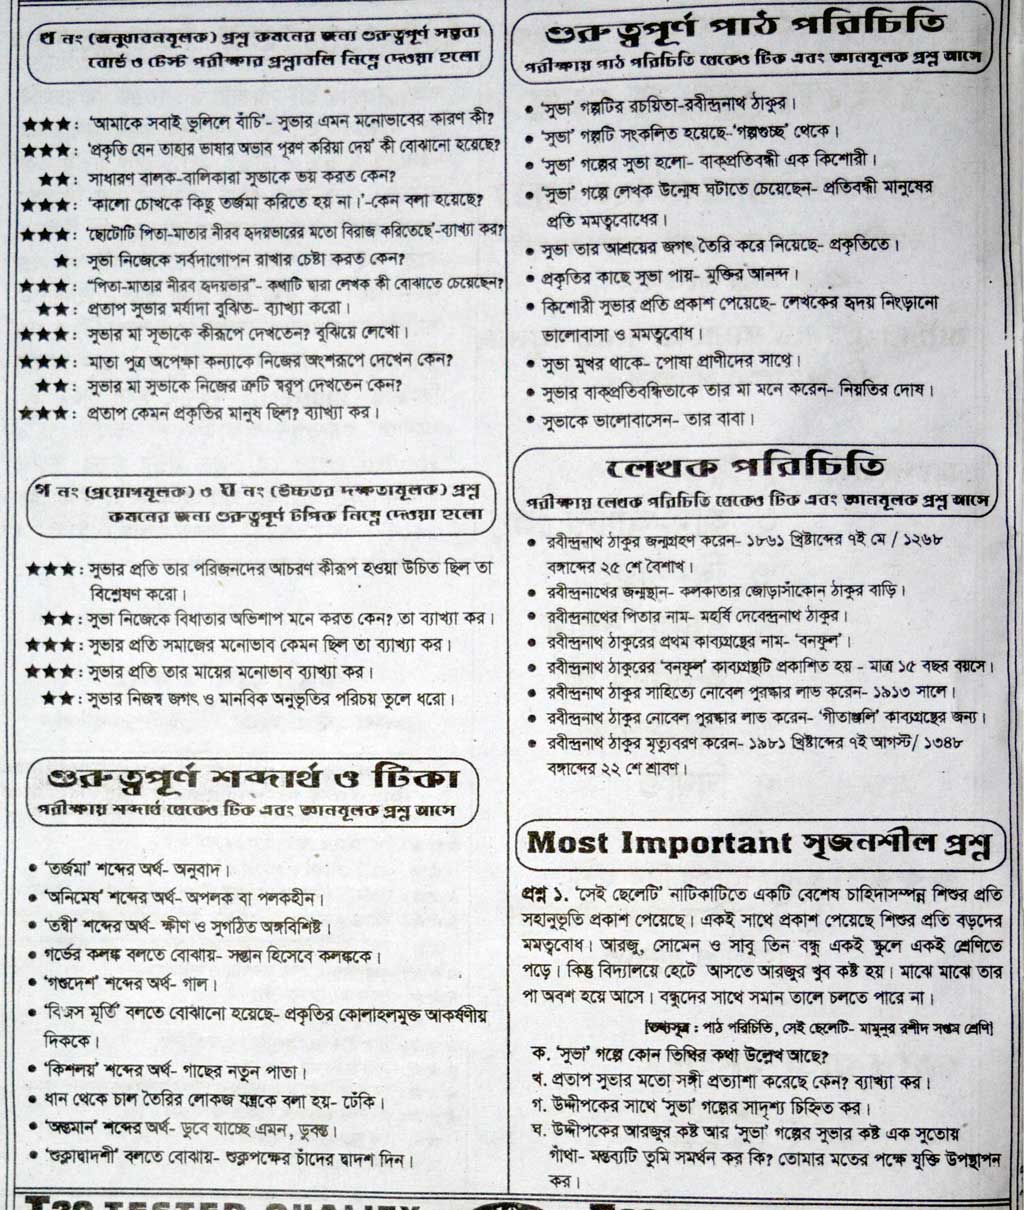 খ নং (অনুধাবনমূলক) প্রশ্ন কমনের জন্য গুরুত্বপূর্ণ সম্ভব্য
বোর্ড ও টেস্ট পরীক্ষার প্রশ্নাবলি নিম্নে দেওয়া হলো
★★★: ‘আমাকে সবাই ভুলিলে বাঁচি’- সুভার এমন মনোভাবের কারণ কী?
★★★: ‘প্রকৃতি যেন তাহার ভাষার অভাব পূরণ করিয়া দেয়’ কী বোঝানো হয়েছে?
★★: সাধারণ বালক-বালিকারা সুভাকে ভয় করত কেন?
★★★: ‘কালো চোখকে কিছু তর্জমা করিতে হয় না।’-কেন বলা হয়েছে?
★★★: ‘ছোটোটি পিতা-মাতার নীরব হৃদয়ভারের মতো বিরাজ করিতেছে’-ব্যাখ্যা কর?
★: সুভা নিজেকে সর্বদাগোপন রাখার চেষ্টা করত কেন?
★★★: “পিতা-মাতার নীরব হৃদয়ভার”- কথাটি দ্বারা লেখক কী বোঝাতে চেয়েছেন?
★★: প্রতাপ সুভার মর্যাদা বুঝিত- ব্যাখ্যা করো।
★★★: সুভার মা সুভাকে কীরূপে দেখতেন? বুঝিয়ে লেখো।
★★★: মাতা পুত্র অপেক্ষা কন্যাকে নিজের অংশরূপে দেখেন কেন?
★★: সুভার মা সুভাকে নিজের ত্রুটি স্বরূপ দেখতেন কেন?
★★★: প্রতাপ কেমন প্রকৃতির মানুষ ছিল? ব্যাখ্যা কর।
গ নং (প্রয়োগমূলক) ও ঘ নং (উচ্চতর দক্ষতামূলক) প্রশ্ন
কমনের জন্য গুরুত্বপূর্ণ টপিক নিম্নে দেওয়া হলো
★★★: সুভার প্রতি তার পরিজনদের আচরণ কীরূপ হওয়া উচিত ছিল তা
বিশ্লেষণ করো।
★★: সুভা নিজেকে বিধাতার অভিশাপ মনে করত কেন? তা ব্যাখ্যা কর।
★★★: সুভার প্রতি সমাজের মনোভাব কেমন ছিল তা ব্যাখ্যা কর।
★★★: সুভার প্রতি তার মায়ের মনোভাব ব্যাখ্যা কর।
★★: সুভার নিজস্ব জগৎ ও মানবিক অনুভূতির পরিচয় তুলে ধরো।
গুরুত্বপূর্ণ শব্দার্থ ও টিকা
পরীক্ষায় শব্দার্থ থেকেও টিক এবং জ্ঞানমূলক প্রশ্ন আসে
• ‘তর্জমা’ শব্দের অর্থ- অনুবাদ।
• ‘অনিমেষ’ শব্দের অর্থ- অপলক বা পলকহীন।
• ‘তন্বী’ শব্দের অর্থ- ক্ষীণ ও সুগঠিত অঙ্গবিশিষ্ট।
• গর্ভের কলঙ্ক বলতে বোঝায়- সন্তান হিসেবে কলঙ্ককে।
• ‘গণ্ডদেশ’ শব্দের অর্থ- গাল।
• ‘বিজন মূর্তি’ বলতে বোঝানো হয়েছে- প্রকৃতির কোলাহলমুক্ত আকর্ষণীয়
দিককে।
• ‘কিশলয়’ শব্দের অর্থ- গাছের নতুন পাতা।
• ধান থেকে চাল তৈরির লোকজ যন্ত্রকে বলা হয়- ঢেঁকি।
• ‘অস্তমান’ শব্দের অর্থ- ডুবে যাচ্ছে এমন, ডুবন্ত।
• ‘শুক্লাদ্বাদশী’ বলতে বোঝায়- শুক্লপক্ষের চাঁদের দ্বাদশ দিন।
গুরুত্বপূর্ণ পাঠ পরিচিতি
পরীক্ষায় পাঠ পরিচিতি থেকেও টিক এবং জ্ঞানমূলক প্রশ্ন আসে
• ‘সুভা’ গল্পটির রচয়িতা-রবীন্দ্রনাথ ঠাকুর।
• ‘সুভা’ গল্পটি সংকলিত হয়েছে-‘গল্পগুচ্ছ’ থেকে।
• ‘সুভা’ গল্পের সুভা হলো- বাক্‌প্রতিবন্ধী এক কিশোরী।
• ‘সুভা’ গল্পে লেখক উন্মেষ ঘটাতে চেয়েছেন- প্রতিবন্ধী মানুষের
প্রতি মমত্ববোধের।
• সুভা তার আশ্রয়ের জগৎ তৈরি করে নিয়েছে- প্রকৃতিতে।
• প্রকৃতির কাছে সুভা পায়- মুক্তির আনন্দ।
• কিশোরী সুভার প্রতি প্রকাশ পেয়েছে- লেখকের হৃদয় নিংড়ানো
ভালোবাসা ও মমত্ববোধ।
• সুভা মুখর থাকে- পোষা প্রাণীদের সাথে।
• সুভার বাক্‌প্রতিবন্ধিতাকে তার মা মনে করেন- নিয়তির দোষ।
• সুভাকে ভালোবাসেন- তার বাবা।
লেখক পরিচিতি
পরীক্ষায় লেখক পরিচিতি থেকেও টিক এবং জ্ঞানমূলক প্রশ্ন আসে
• রবীন্দ্রনাথ ঠাকুর জন্মগ্রহণ করেন- ১৮৬১ খ্রিষ্টাব্দের ৭ই মে / ১২৬৮
বঙ্গাব্দের ২৫ শে বৈশাখ।
• রবীন্দ্রনাথের জন্মস্থান- কলকাতার জোড়াসাঁকোন ঠাকুর বাড়ি।
• রবীন্দ্রনাথের পিতার নাম- মহর্ষি দেবেন্দ্রনাথ ঠাকুর।
• রবীন্দ্রনাথ ঠাকুরের প্রথম কাব্যগ্রন্থের নাম- ‘বনফুল’।
• রবীন্দ্রনাথ ঠাকুরের ‘বনফুল’ কাব্যগ্রন্থটি প্রকাশিত হয় - মাত্র ১৫ বছর বয়সে।
• রবীন্দ্রনাথ ঠাকুর সাহিত্যে নোবেল পুরস্কার লাভ করেন- ১৯১৩ সালে।
• রবীন্দ্রনাথ ঠাকুর নোবেল পুরস্কার লাভ করেন- ‘গীতাঞ্জলি’ কাব্যগ্রন্থের জন্য।
• রবীন্দ্রনাথ ঠাকুর মৃত্যুবরণ করেন- ১৯৮১ খ্রিষ্টাব্দের ৭ই আগস্ট/ ১৩৪৮
বঙ্গাব্দের ২২ শে শ্রাবণ।
Most Important সৃজনশীল প্রশ্ন
প্রশ্ন ১. ‘সেই ছেলেটি’ নাটিকাটিতে একটি বেশেষ চাহিদাসম্পন্ন শিশুর প্রতি
সহানুভূতি প্রকাশ পেয়েছে। একই সাথে প্রকাশ পেয়েছে শিশুর প্রতি বড়দের
মমত্ববোধ। আরজু, সোমেন ও সাবু তিন বন্ধু একই স্কুলে একই শ্রেণিতে
পড়ে। কিন্তু বিদ্যালয়ে হেটে আসতে আরজুর খুব কষ্ট হয়। মাঝে মাঝে তার
পা অবশ হয়ে আসে। বন্ধুদের সাথে সমান তালে চলতে পারে না।
[তথ্যসূত্র : পাঠ পরিচিতি, সেই ছেলেটি- মামুনুর রশীদ সপ্তম শ্রেণি]
ক. ‘সুভা’ গল্পে কোন তিথির কথা উল্লেখ আছে?
খ. প্রতাপ সুভার মতো সঙ্গী প্রত্যাশা করেছে কেন? ব্যাখ্যা কর।
গ. উদ্দীপকের সাথে ‘সুভা’ গল্পের সাদৃশ্য চিহ্নিত কর।
ঘ. উদ্দীপকের আরজুর কষ্ট আর ‘সুভা’ গল্পের সুভার কষ্ট এক সুতোয়
গাঁথা- মন্তব্যটি তুমি সমর্থন কর কি? তোমার মতের পক্ষে যুক্তি উপস্থাপন
কর।